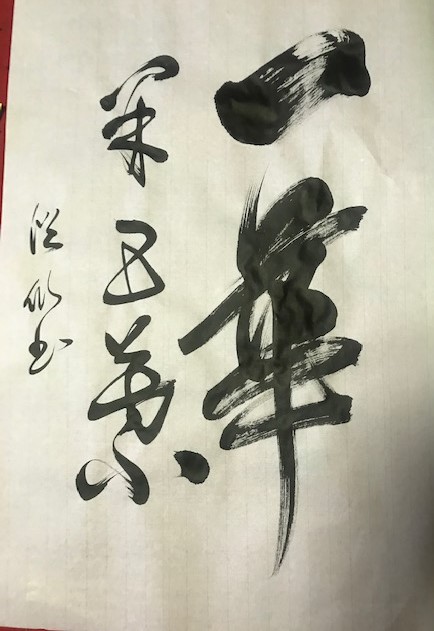 一華
開五葉
書